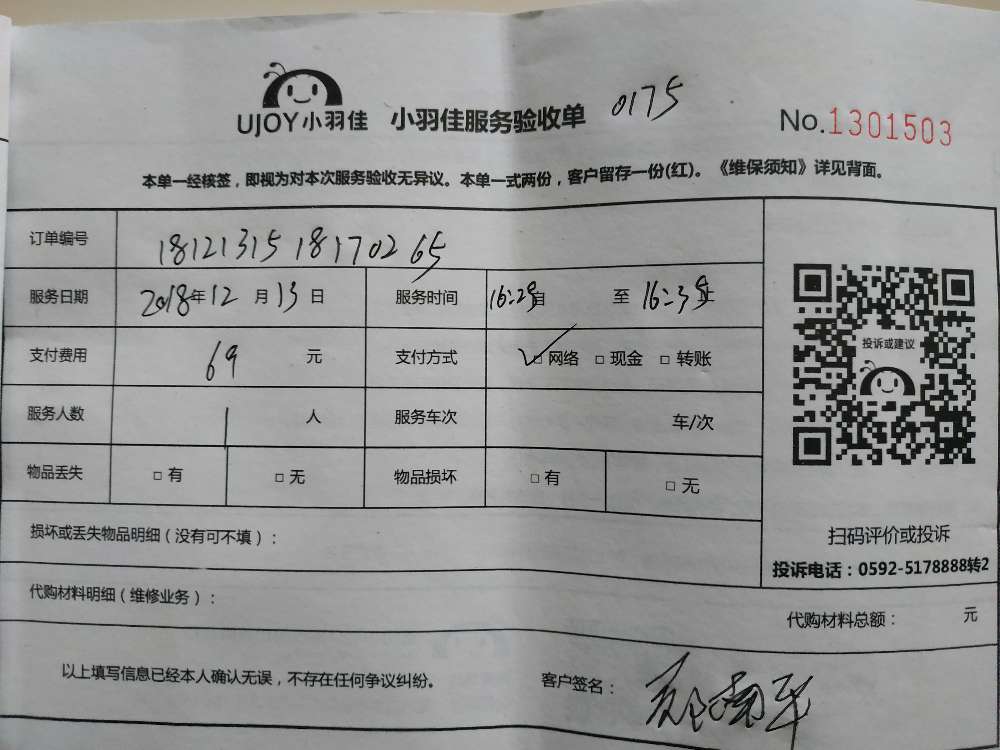 UJOY小羽佳 小羽佳服务验收单 0175 No.1301503
本单一经核签，即视为对本次服务验收无异议。本单一式两份，客户留存一份(红)。《维保须知》详见背面。
订单编号 1812131518170265
服务日期 2018年12月13日 服务时间 16:29 至 16:39
支付费用 69 元 支付方式 ☑网络 □现金 □转账
服务人数 1 人 服务车次 车/次
物品丢失 □有 □无 物品损坏 □有 □无
投诉或建议
损坏或丢失物品明细（没有可不填）：
扫码评价或投诉
投诉电话：0592-5178888转2
代购材料明细（维修业务）：
代购材料总额： 元
以上填写信息已经本人确认无误，不存在任何争议纠纷。 客户签名：